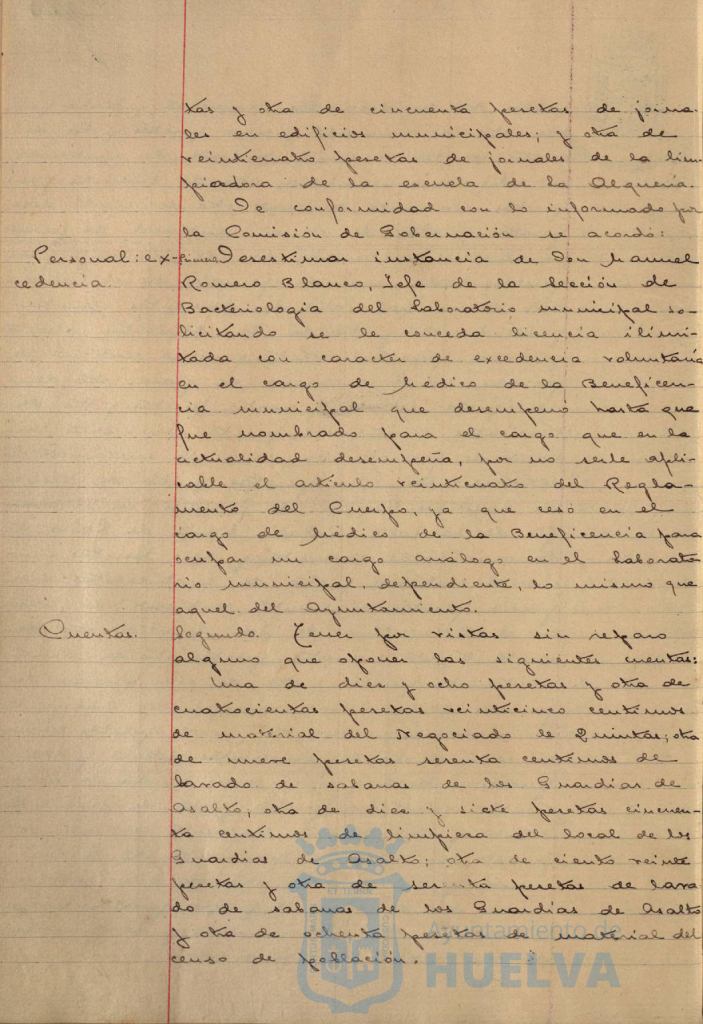 tas y otra de cincuenta pesetas de jorna-
les en edificios municipales; y otra de
veinticuatro pesetas de jornales de la lim-
piadora de la escuela de la Alquería.
De conformidad con lo informado por
la Comisión de Gobernación se acordó:
Personal: ex-
cedencia.
Primero. Desestimar instancia de Don Manuel
Romero Blanco, Jefe de la Sección de
Bacteriología del Laboratorio municipal so-
licitando se le conceda licencia ilimi-
tada con caracter de excedencia voluntaria
en el cargo de Médico de la Beneficen-
cia municipal que desempeñó hasta que
fue nombrado para el cargo que en la
actualidad desempeña, por no serle apli-
cable el artículo veinticuatro del Regla-
mento del Cuerpo, ya que cesó en el
cargo de Médico de la Beneficencia para
ocupar un cargo análogo en el Laborato-
rio municipal, dependiente, lo mismo que
aquel del Ayuntamiento.
Cuentas.
Segundo. Tener por vistas sin reparo
alguno que oponer las siguientes cuentas:
Una de diez y ocho pesetas y otra de
cuatrocientas pesetas veinticinco centimos
de material del Negociado de Quintas; otra
de nueve pesetas sesenta centimos de
lavado de sabanas de los Guardias de
Asalto; otra de diez y siete pesetas cincuen-
ta centimos de limpieza del local de los
Guardias de Asalto; otra de ciento veinte
pesetas y otra de pesetas de lava-
do de sabanas de los Guardias de Asalto
y otra de ochenta pesetas de material del
censo de población.
Ayuntamiento de
HUELVA